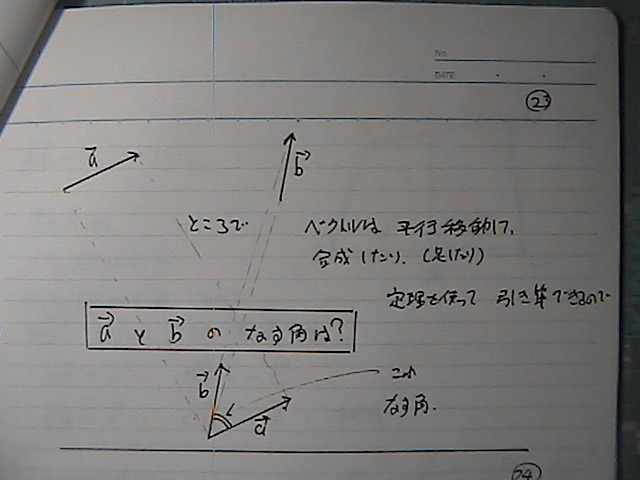 No.
DATE ・ ・
23
a b
ところで
ベクトルは 平行移動して、
合成したり、(足したり)
定理を使って 引き算できるので
a と b の なす角は?
b a
この
なす角.
24